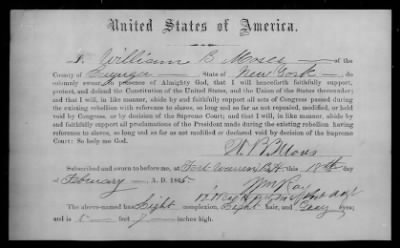 United States of America.
I, William B. Moses of the
County of Cayuga State of New York do
solemnly swear, in presence of Almighty God, that I will henceforth faithfully support,
protect, and defend the Constitution of the United States, and the Union of the States thereunder;
and that I will, in like manner, abide by and faithfully support all acts of Congress passed during
the existing rebellion with reference to slaves, so long and so far as not repealed, modified, or held
void by Congress, or by decision of the Supreme Court; and that I will, in like manner, abide by
and faithfully support all proclamations of the President made during the existing rebellion having
reference to slaves, so long and so far as not modified or declared void by decision of the Supreme
Court: So help me God.
W. B. Moses
Subscribed and sworn to before me, at Fort Warren B.H. this 18th day
of February A. D. 1865.
Wm Ray
The above-named has light complexion, light hair, and Gray eyes;
and is 5 feet 7 inches high.